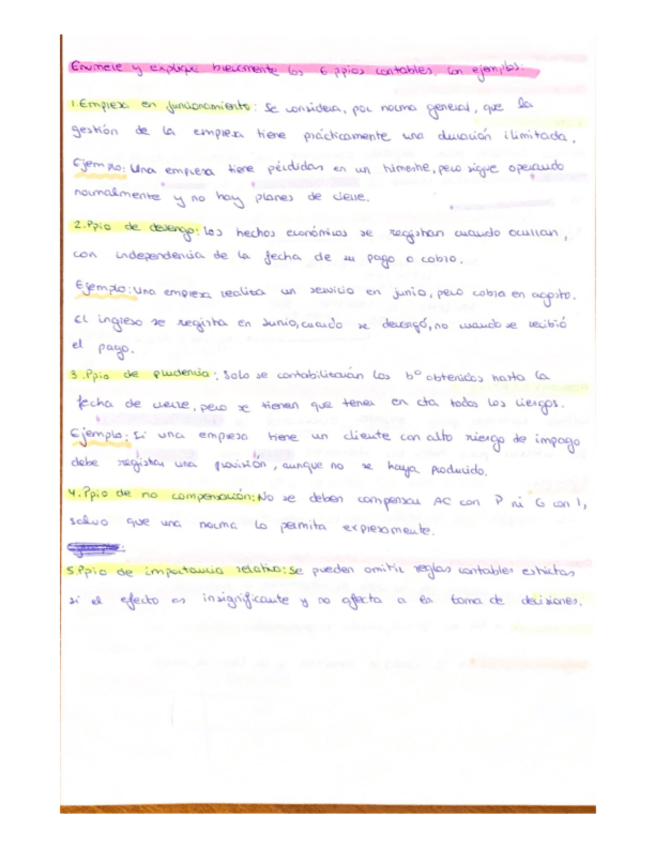 Enumere y explique brevemente los 6 ppios contables, con ejemplos:
1. Empresa en funcionamiento: Se considera, por norma general, que la
gestión de la empresa tiene prácticamente una duración ilimitada.
Ejemplo: Una empresa tiene pérdidas en un trimestre, pero sigue operando
normalmente y no hay planes de cierre.
2. Ppio de devengo: Los hechos económicos se registran cuando ocurran,
con independencia de la fecha de su pago o cobro.
Ejemplo: Una empresa realiza un servicio en junio, pero cobra en agosto.
El ingreso se registra en Junio, cuando se devengó, no cuando se recibió
el pago.
3. Ppio de prudencia: Solo se contabilizarán los bº obtenidos hasta la
fecha de cierre, pero se tienen que tener en cta todos los riesgos.
Ejemplo: Si una empresa tiene un cliente con alto riesgo de impago
debe registrar una provisión, aunque no se haya producido.
4. Ppio de no compensación: No se deben compensar AC con P ni G con I,
salvo que una norma lo permita expresamente.
5. Ppio de importancia relativa: Se pueden omitir reglas contables estrictas
si el efecto es insignificante y no afecta a la toma de decisiones.